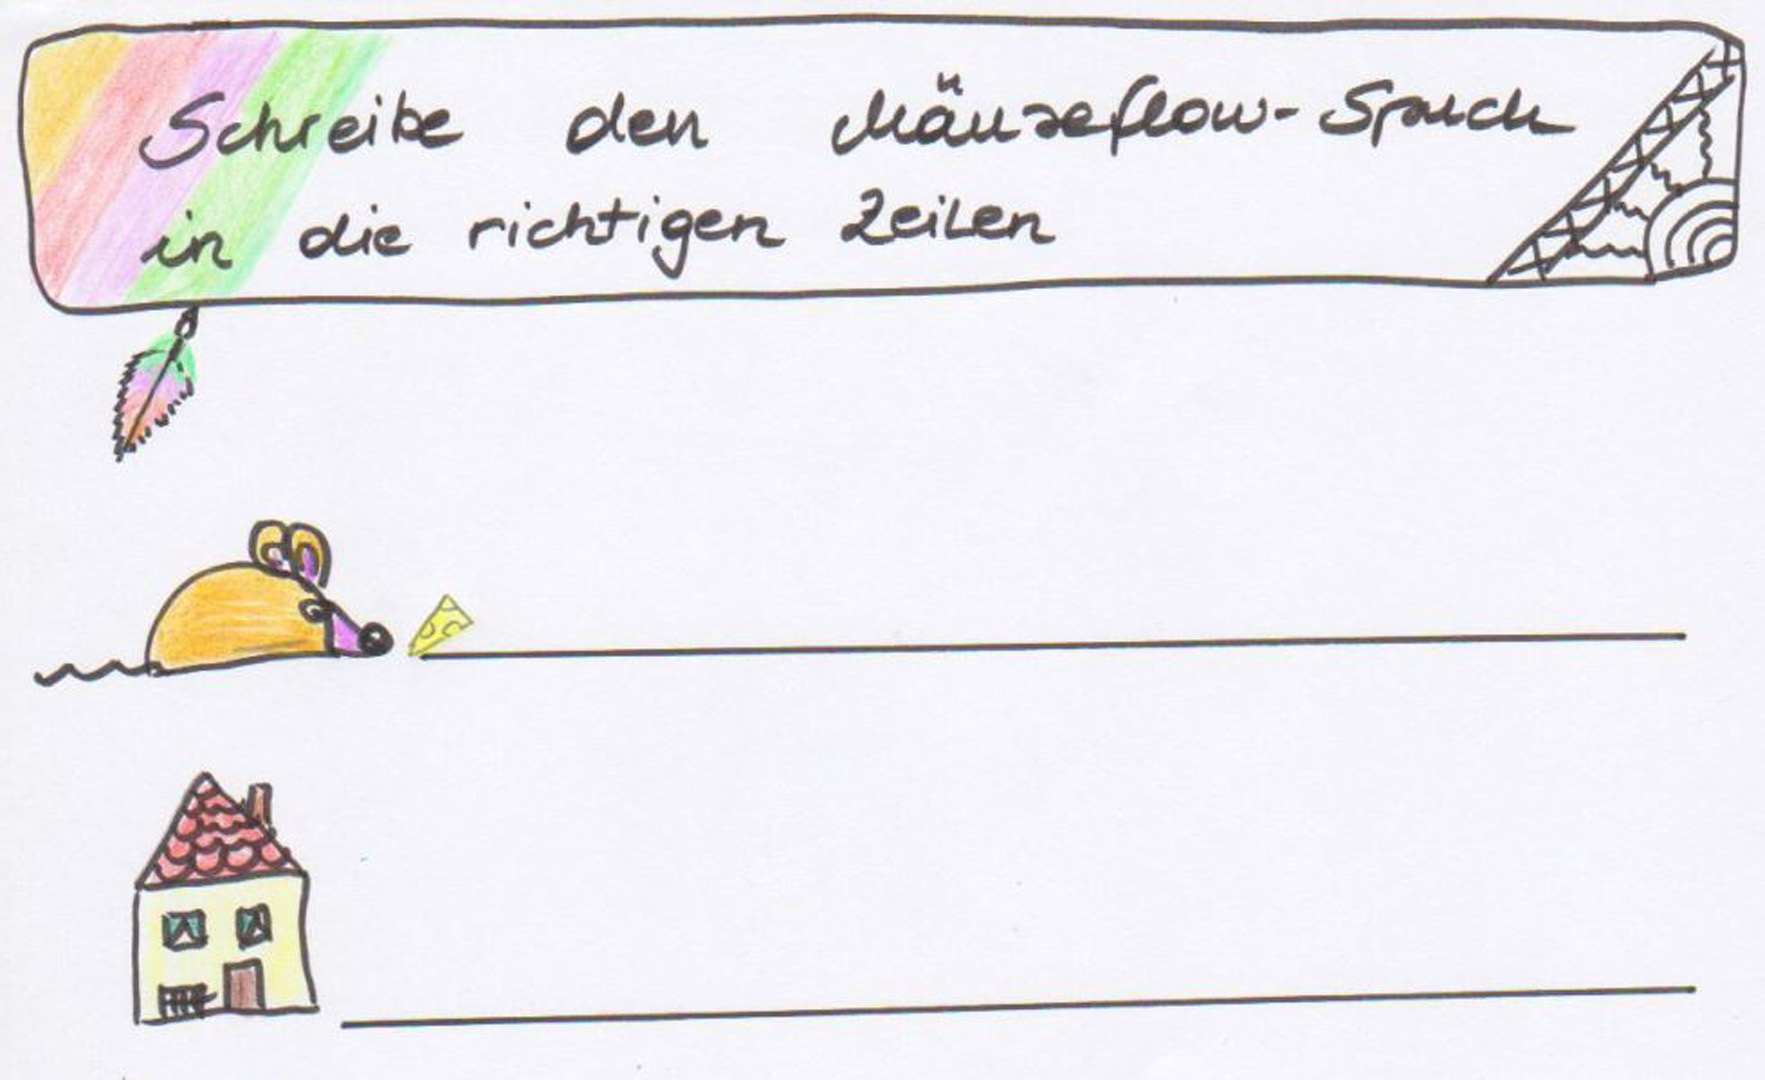 Schreibe den Mäuseflow-Spruch
in die richtigen Zeilen